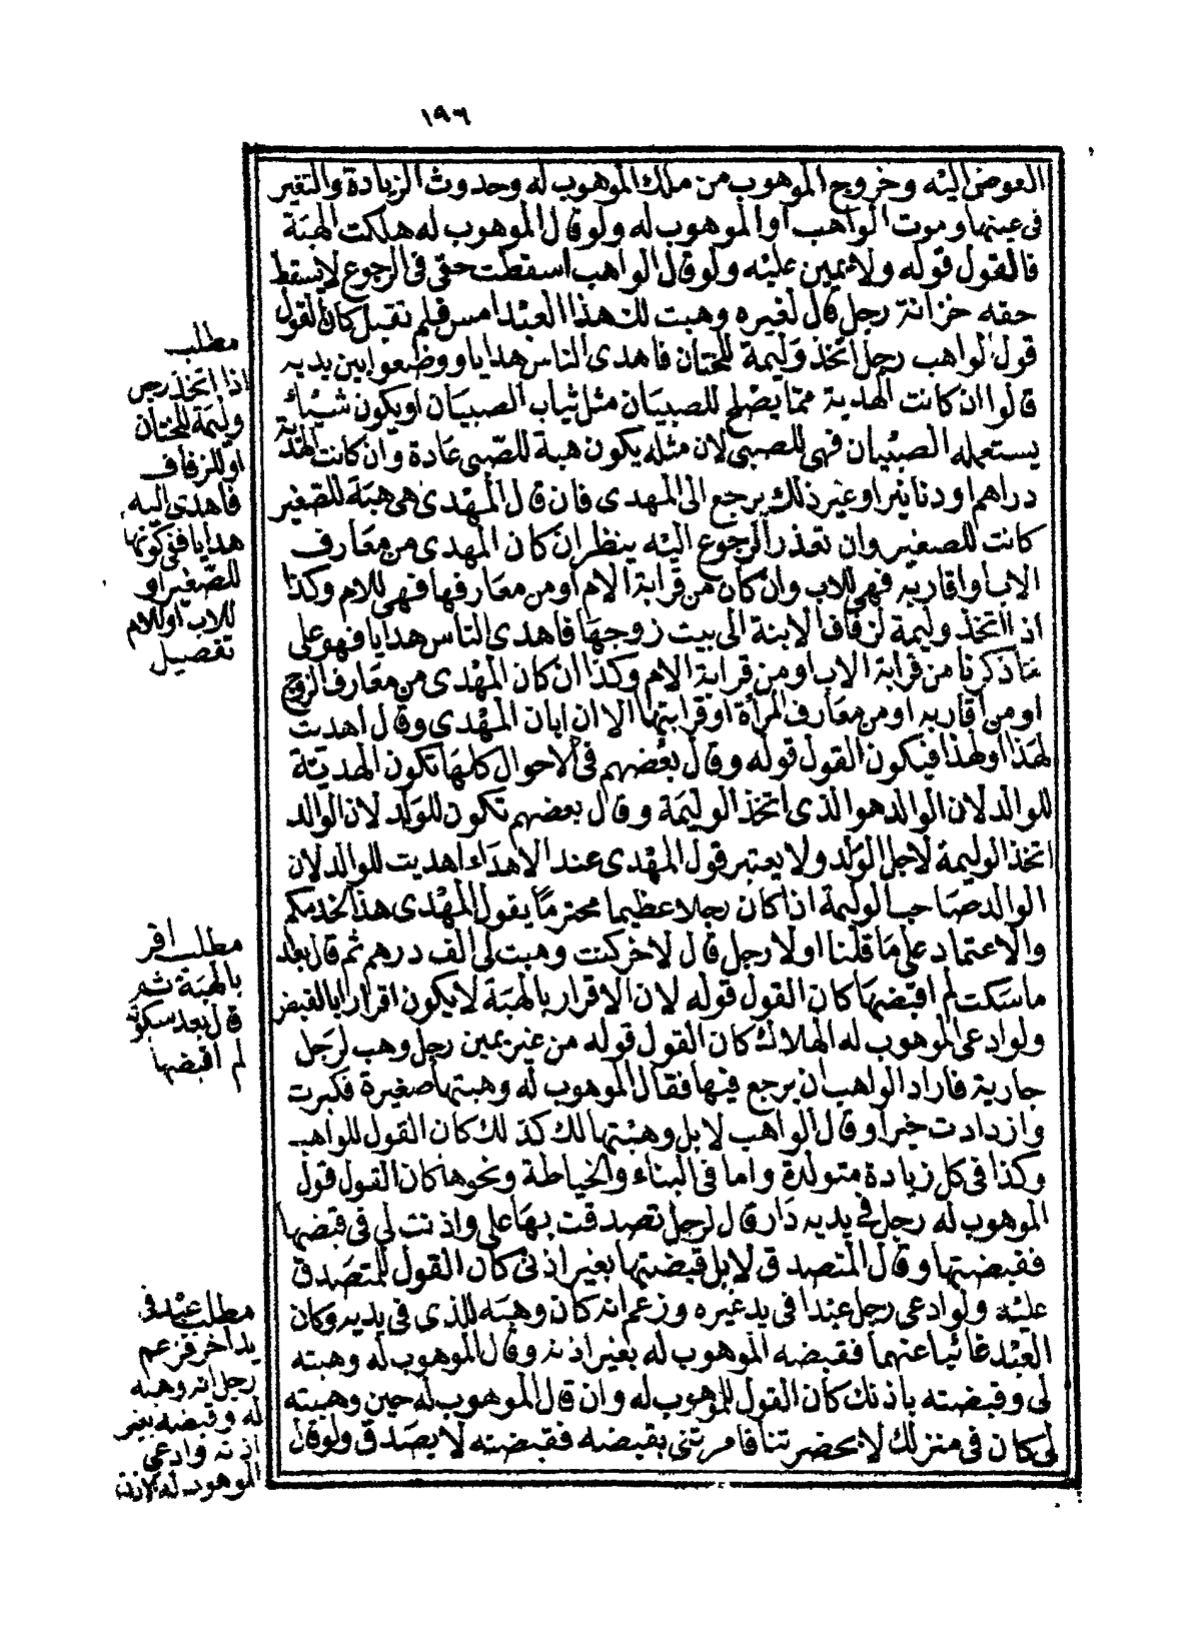 ١٩٦
العوض اليه وخروج الموهوب من ملك الموهوب له وحدوث الزيادة والتغير
فى عينها وموت الواهب او الموهوب له ولو قال الموهوب له هلكت الهبة
فالقول قوله ولا يمين عليه ولو قال الواهب اسقطت حقى فى الرجوع لا يسقط
حقه خزانة رجل قال لغيره وهبت لك هذا العبد امس فلم تقبل كان القول
قول الواهب رجل اتخذ وليمة للختان فاهدى الناس هدايا ووضعوا بين يديه
قالوا ان كانت الهدية مما يصلح للصبيان مثل ثياب الصبيان او يكون شيئا
يستعمله الصبيان فهى للصبى لان مثله يكون هبة للصبى عادة وان كانت الهدية
دراهم او دنانير او غير ذلك يرجع الى المهدى فان قال المهدى هى هبة للصغير
كانت للصغير وان تعذر الرجوع اليه ينظر ان كان المهدى من معارف
الاب او اقاربه فهى للاب وان كان من قرابة الام او من معارفها فهى للام وكذا
اذا اتخذ وليمة لزفاف الابنة الى بيت زوجها فاهدى الناس هدايا فهو على
ما ذكرنا من قرابة الاب او من قرابة الام وكذا ان كان المهدى من معارف الزوج
او من اقاربه او من معارف المرأة او قرابتها الا ان ابان المهدى وقال اهديت
لهذا او لهذا فيكون القول قوله وقال بعضهم فى الاحوال كلها تكون الهدية
للوالد لان الوالد هو الذى اتخذ الوليمة وقال بعضهم تكون للولد لان الوالد
اتخذ الوليمة لاجل الولد ولا يعتبر قول المهدى عند الاهداء اهديت للوالد لان
الوالد صاحب الوليمة اذا كان رجلا عظيما محترما يقول المهدى هذا لخدمكم
والاعتماد على ما قلنا اولا رجل قال لاخر كنت وهبت لى الف درهم ثم قال بعد
ما سكت لم اقبضها كان القول قوله لان الاقرار بالهبة لا يكون اقرارا بالقبض
ولو ادعى الموهوب له الهلاك كان القول قوله من غير يمين رجل وهب لرجل
جارية فاراد الواهب ان يرجع فيها فقال الموهوب له وهبتها صغيرة فكبرت
وازدادت خيرا وقال الواهب لا بل وهبتها لك كذلك كان القول للواهب
وكذا فى كل زيادة متولدة واما فى البناء والخياطة ونحوها كان القول قول
الموهوب له رجل فى يديه دار قال لرجل تصدقت بها على واذنت لى فى قبضها
فقبضتها وقال المتصدق لا بل قبضتها بغير اذنى كان القول للمتصدق
عليه ولو ادعى رجل عبدا فى يد غيره وزعم انه كان وهبه للذى فى يديه وكان
العبد غائبا عنهما فقبضه الموهوب له بغير اذنه وقال الموهوب له وهبته
لى وقبضته باذنك كان القول للموهوب له وان قال الموهوب له حين وهبته
لى كان فى منزلك لا بحضرتنا فامرتنى بقبضه فقبضته لا يصدق ولو قال
مطلب
اذا اتخذ رجل
وليمة للختان
او للزفاف
فاهدى اليه
هدايا ففى كونها
للصغير او
للاب او للام
تفصيل
مطلب اقر
بالهبة ثم
قال بعد سكوته
لم اقبضها
مطلب عبد فى
يد اخر فزعم
رجل انه وهبه
له وقبضه بغير
اذنه وادعى
الموهوب له الاذن